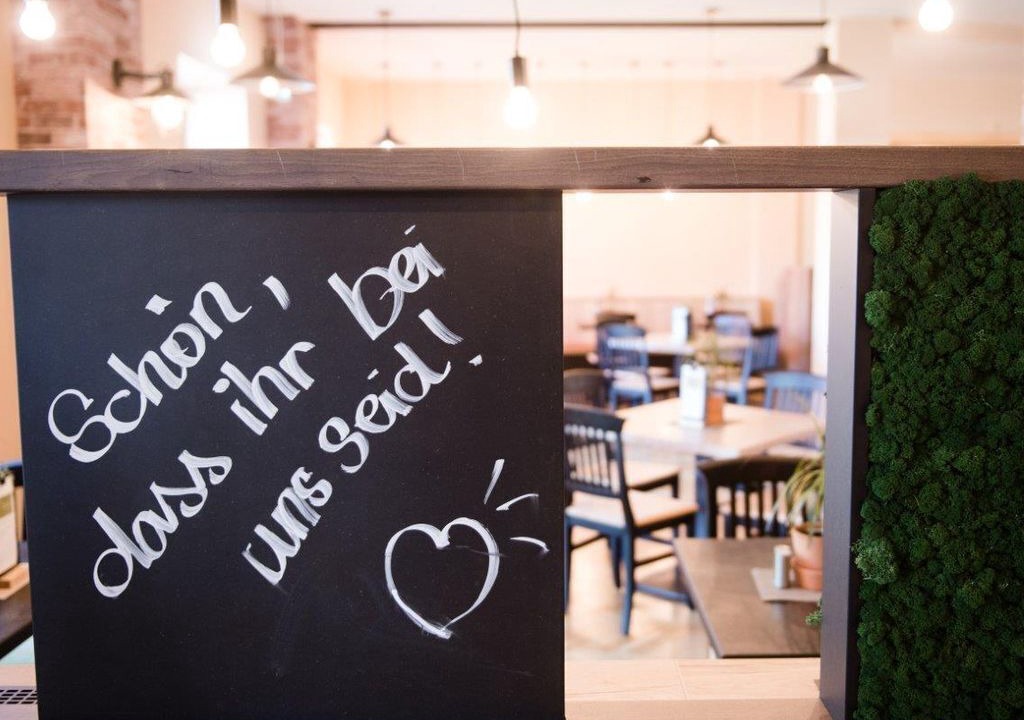 Schön,
dass ihr bei
uns seid!